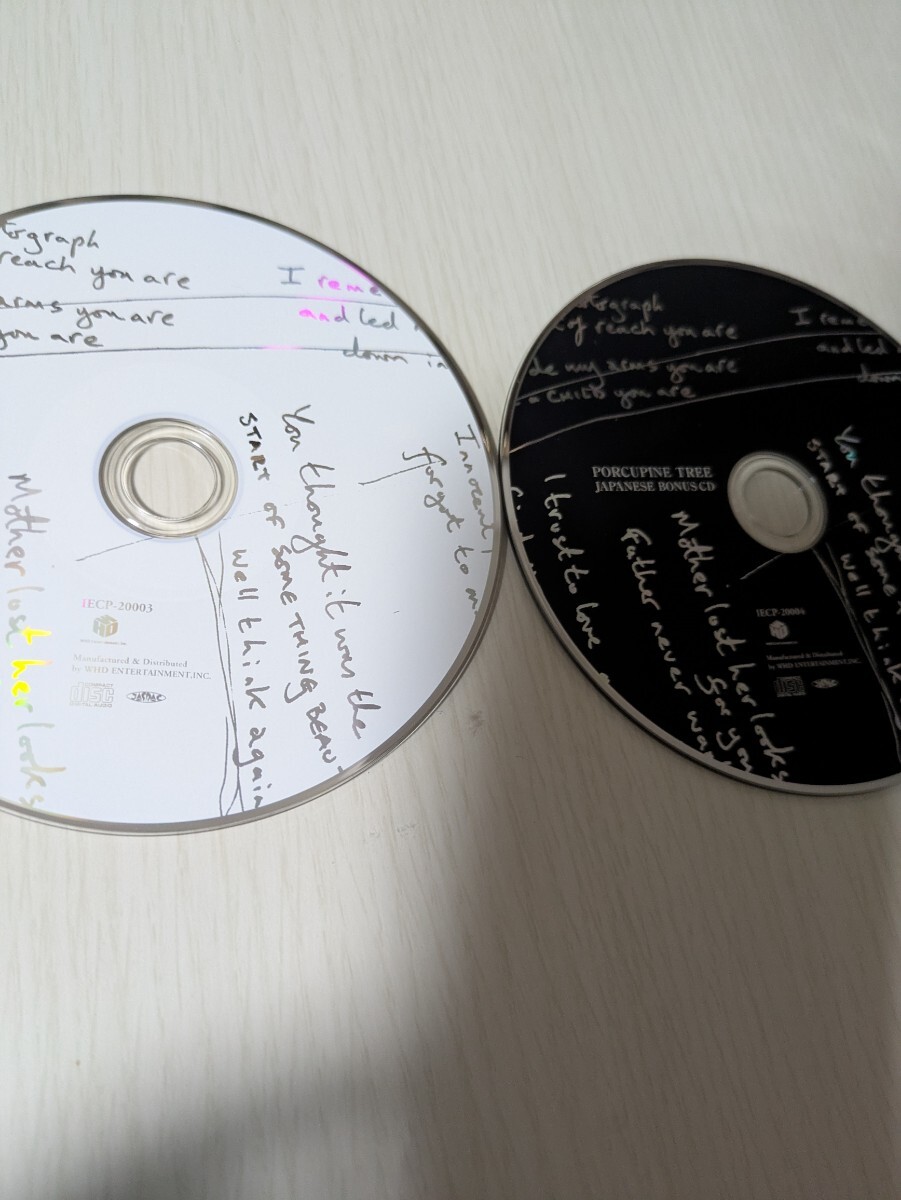 reach you are
arms you are
you are
I reme
and led
down in
Innocent
forgot to
You thought it was the
START of SOME THING BEAU
Well think again
Mother lost her looks
IECP-20003
Manufactured & Distributed
by WHD ENTERTAINMENT, INC.
COMPACT
DISC
DIGITAL AUDIO
JASRAC
of reach you are
my arms you are
a child you are
I reme
and led
down
PORCUPINE TREE
JAPANESE BONUS CD
You thoug
START of SOME
Well think
I trust to love
Mother lost her looks
for you
Father never wa
IECP-20004
Manufactured & Distributed
by WHD ENTERTAINMENT, INC.
DISC
JASRAC